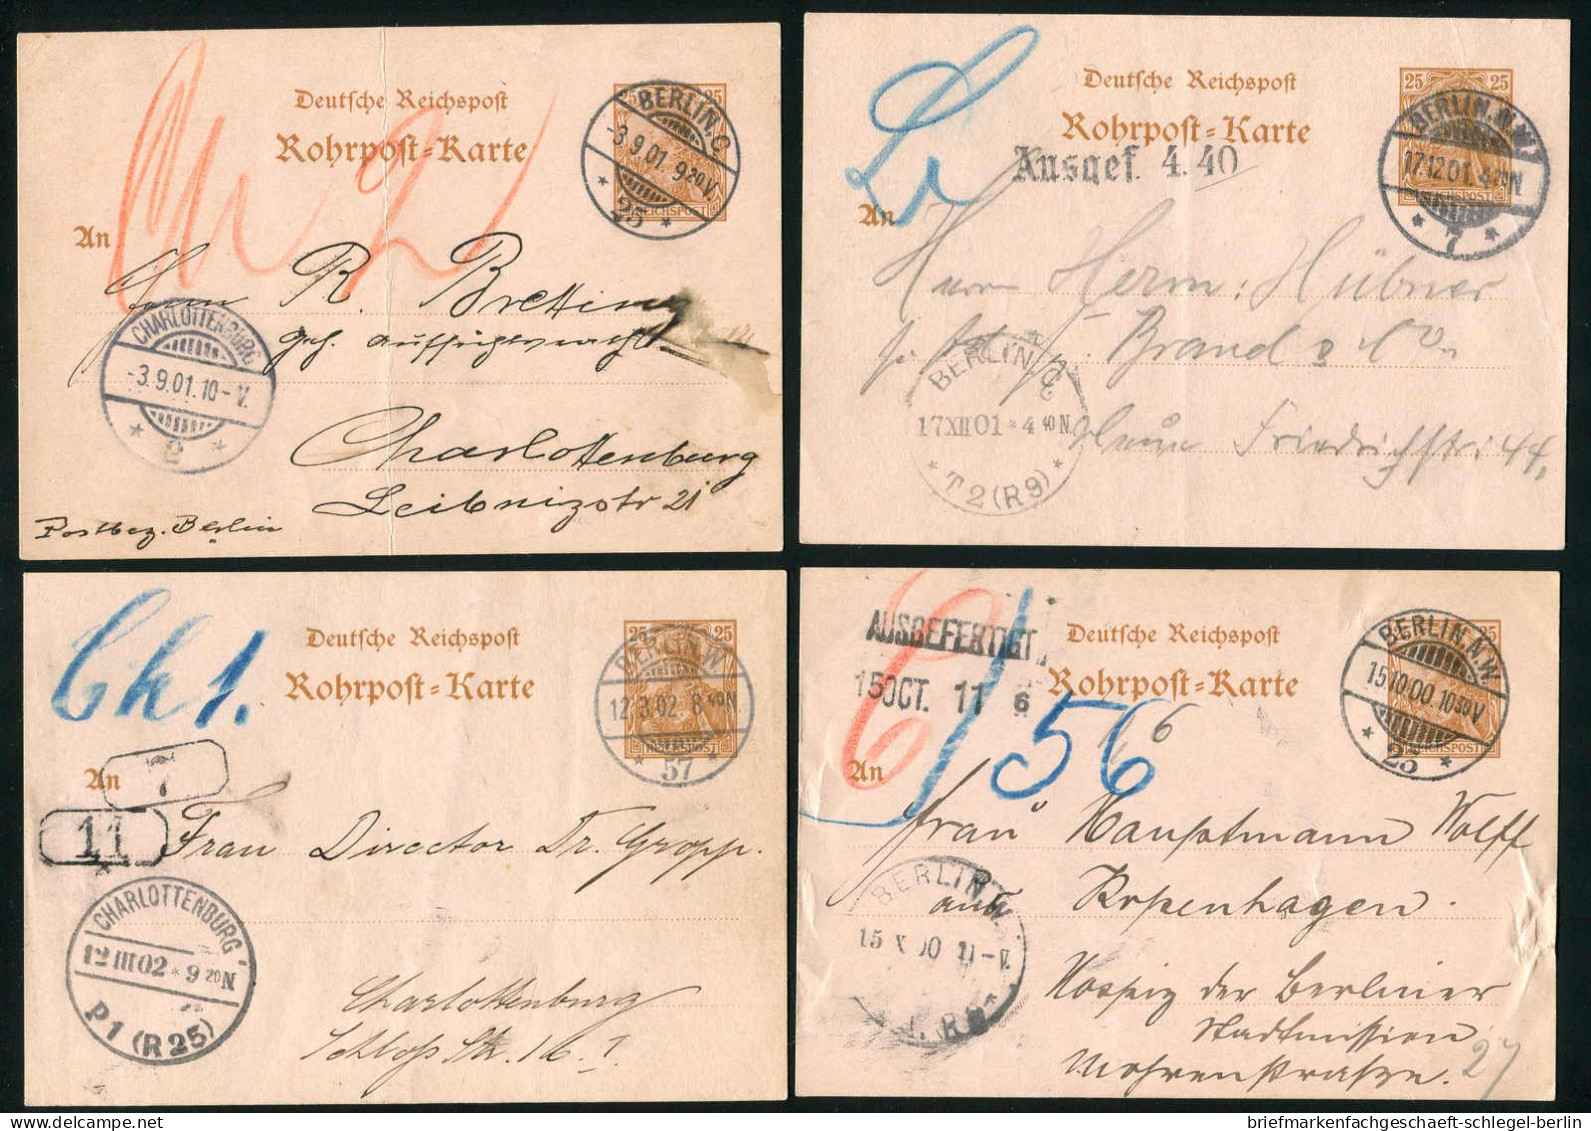 Deutsche Reichspost
Rohrpost-Karte
25 25
REICHSPOST
BERLIN.C.
-3.9.01. 9 20 V.
* 25 *
An
R. Bretting
CHARLOTTENBURG
-3.9.01. 10-V.
* 2 *
Charlottenburg
Leibnizstr 21
Postbez. Berlin
Deutsche Reichspost
Rohrpost-Karte
25 25
Ausgef. 4. 40
BERLIN.N.W.
17.12.01. 4 20 N.
* 7 *
An
Herrn Herm: Hübner
Brand & Co
BERLIN, C
17XII01 * 4 40 N.
* T 2 (R 9) *
Neue Friedrichstr: 44,
Ch 1.
Deutsche Reichspost
Rohrpost-Karte
25 25
REICHSPOST
BERLIN.W.
12.3.02. 8 40 N.
* 57 *
An
7
11
Frau Director Dr. Gropp.
CHARLOTTENBURG
12 III 02 * 9 20 N
P1 (R25)
Charlottenburg
Schloß Str. 16. I.
AUSGEFERTIGT
15 OCT. 11 6
Deutsche Reichspost
Rohrpost-Karte
25
REICHSPOST
BERLIN.N.W.
15.10.00. 10 30 V
* 23 *
56
6
An
Frau Hauptmann Wolff
aus Kopenhagen.
BERLIN.W.
15 X 00 11-V.
Hospiz der Berliner
Stadtmission
Mohrenstrasse. 27
briefmarkenfachgeschaeft-schlegel-berlin